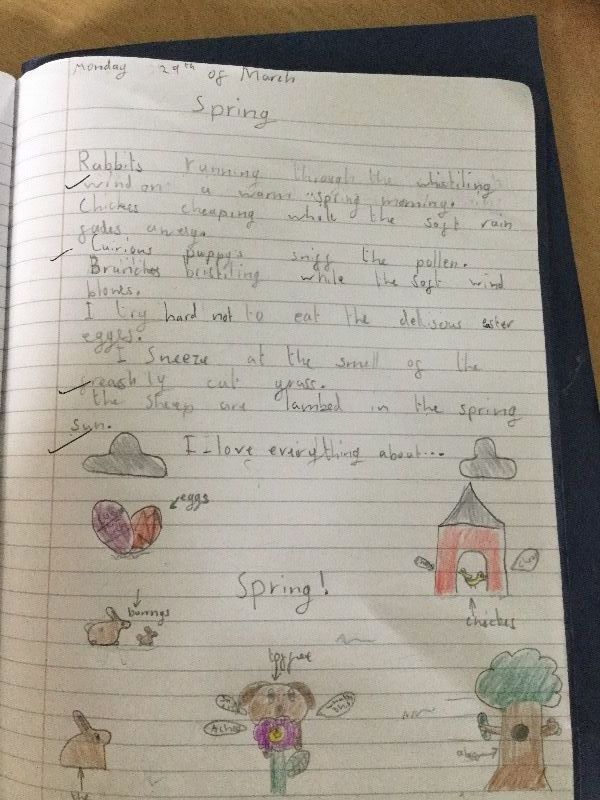 Monday 29th of March
Spring
Rabbits running through the whistiling
wind on a warm spring morning.
Chickes cheaping while the soft rain
fades away.
Cuirious puppy's sniff the pollen.
Branches bristiling while the soft wind
blows.
I try hard not to eat the delisous easter
eggs.
I sneeze at the smell of the
freashly cut grass.
the sheep are lambed in the spring
sun.
I love everything about...
eggs
Spring!
bunnys
chickes
the